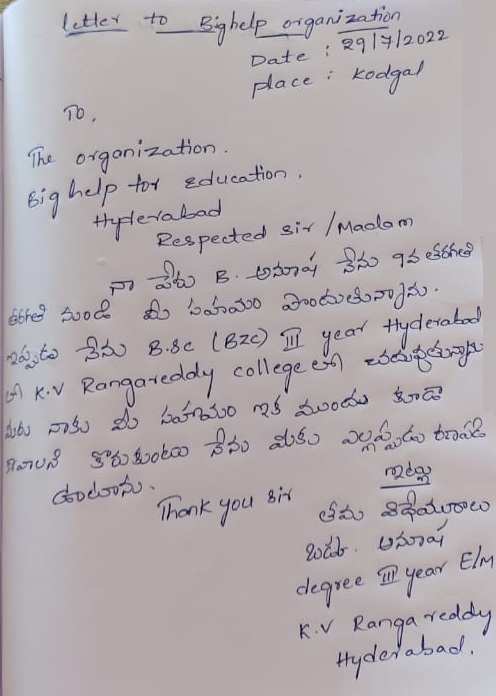 letter to Bighelp organization
Date : 29/7/2022
place : Kodgal
To,
The organization.
Big help for Education,
Hyderabad
Respected sir / Madam
నా పేరు B. అనూష నేను 9వ తరగతి
తరగతి నుండి మీ సహయం పొందుతున్నాను.
ఇప్పుడు నేను B.Sc (BZC) III year Hyderabad
లో K.V Rangareddy college లో చదువుతున్నాను
మీరు నాకు మీ సహయం ఇక ముందు కూడా
ఇవాలని కోరుకుంటూ నేను మీకు ఎల్లప్పుడు రూపడి
ఉంటాను.
Thank you sir
ఇట్లు
తమ విధేయురాలు
అనూష
degree III year E/M
K.V Ranga reddy
Hyderabad.